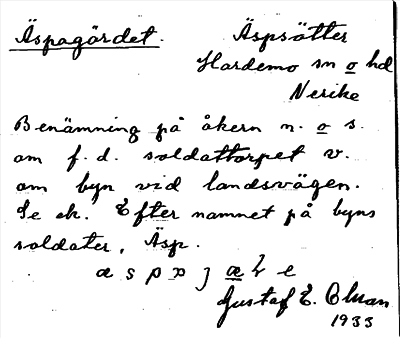 Äspagärdet. Äspsätter
Hardemo sn o hd
Nerike
Benämning på åkern n. o s.
om f. d. soldattorpet v.
om byn vid landsvägen.
Se ek. Efter namnet på byns
soldater, Äsp.
Gustaf E. Ohman
1933